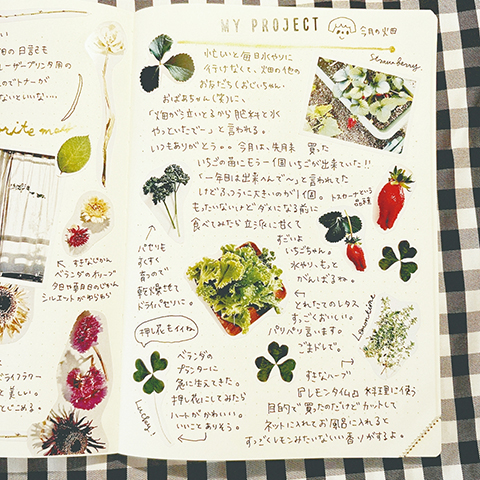 MY PROJECT
今月の畑
Strawberry
忙しいと毎日水やりに
行けなくて、畑の他の
お友だち(おじいちゃん・
おばあちゃん(笑)に、
「畑が泣いとるから肥料と水
やっといたで〜」と言われる。
いつもありがとう。。今月は、先月末 買った
いちごの苗にもう一個いちごが出来ていた!!
「一年目は出来へんで〜」と言われてた
けどふつうに大きいのが1個。
もったいないけどダメになる前に
食べてみたら立派に甘くて
すごいよ
いちごちゃん。
水やり、もっと
がんばるね。
トスカーナという
品種
パセリも
すくすく
育つので
乾燥させて
ドライパセリに。
←
とれたてのレタス
すっごくおいしい。
パリパリ言います。
ごまドレで。
Lemontime
すきなハーブ
『レモンタイム』料理に使う
目的で買ったのだけどカットして
ネットに入れてお風呂に入れると
すっごくレモンみたいないい香りがするよ。
押し花もイイね
ベランダの
プランターに
急に生えてきた。
押し花にしてみたら
ハートがかわいい。
いいことありそう。
Lucky!
の日記も
レーザープリンタ用の
のでトナーが
ないといいな…
orite m
すきなじかん
ベランダのオリーブ
夕日や毎日のじかん
シルエットがゆらゆら
ドライフラワー
美しい。